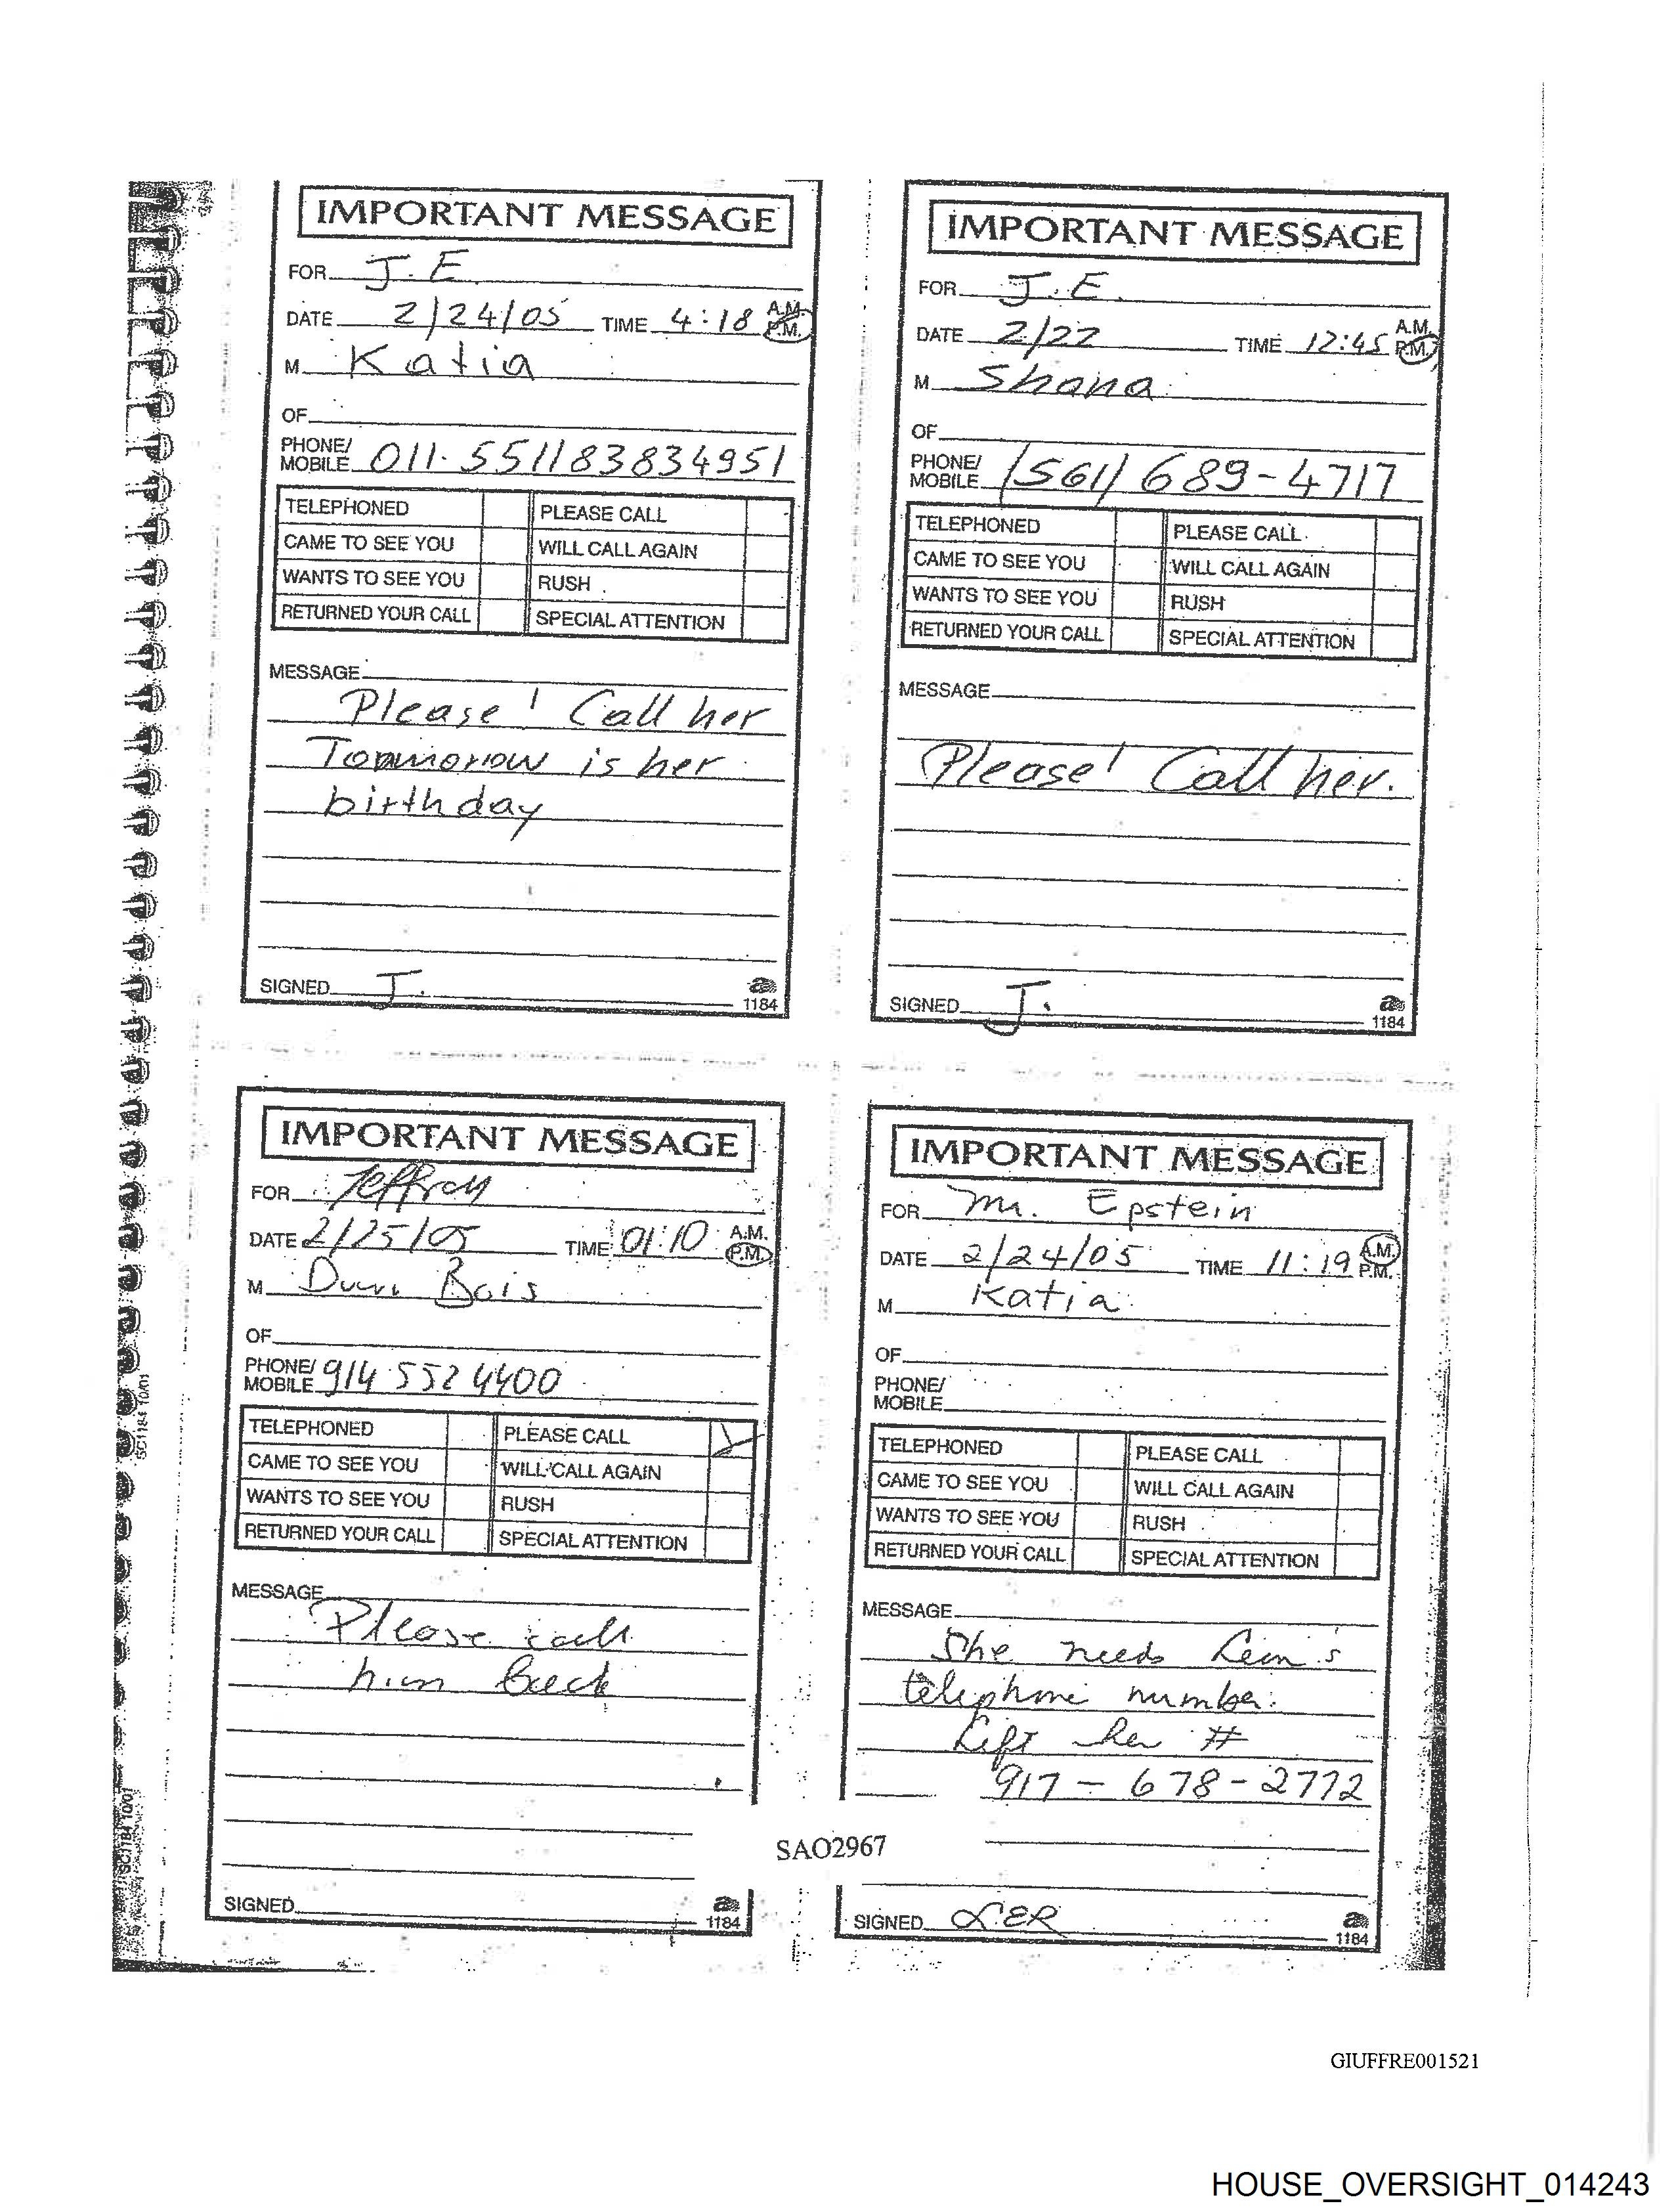 IMPORTANT MESSAGE
FOR J.E.
DATE 2/24/05 TIME 4:18 A.M. P.M.
M Katia
OF
PHONE/
MOBILE 011-551183834951
TELEPHONED PLEASE CALL
CAME TO SEE YOU WILL CALL AGAIN
WANTS TO SEE YOU RUSH
RETURNED YOUR CALL SPECIAL ATTENTION
MESSAGE
Please! Call her
Tommorow is her
birthday
SIGNED J.
1184
IMPORTANT MESSAGE
FOR J.E.
DATE 2/27 TIME 12:45 A.M. P.M.
M Shana
OF
PHONE/
MOBILE (561) 689-4717
TELEPHONED PLEASE CALL
CAME TO SEE YOU WILL CALL AGAIN
WANTS TO SEE YOU RUSH
RETURNED YOUR CALL SPECIAL ATTENTION
MESSAGE
Please! Call her.
SIGNED J.
1184
IMPORTANT MESSAGE
FOR Jeffrey
DATE 2/25/05 TIME 01:10 A.M. P.M.
M
OF
PHONE/
MOBILE 914 552 4400
TELEPHONED PLEASE CALL
CAME TO SEE YOU WILL CALL AGAIN
WANTS TO SEE YOU RUSH
RETURNED YOUR CALL SPECIAL ATTENTION
MESSAGE
Please call
him back
SIGNED
1184
SC1184 10/01
SC1184 10/01
IMPORTANT MESSAGE
FOR Mr. Epstein
DATE 2/24/05 TIME 11:19 A.M. P.M.
M Katia
OF
PHONE/
MOBILE
TELEPHONED PLEASE CALL
CAME TO SEE YOU WILL CALL AGAIN
WANTS TO SEE YOU RUSH
RETURNED YOUR CALL SPECIAL ATTENTION
MESSAGE
She needs
telephone number.
Left her #
917-678-2772
SIGNED
1184
SAO2967
GIUFFRE001521
HOUSE_OVERSIGHT_014243